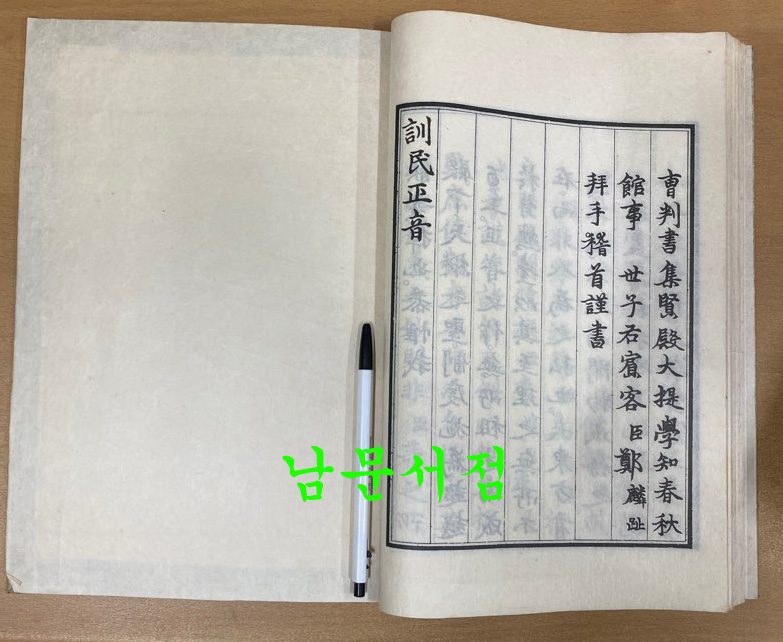 曺判書集賢殿大提學知春秋
館事 世子右賔客臣鄭麟趾
拜手稽首謹書
訓民正音
남문서점